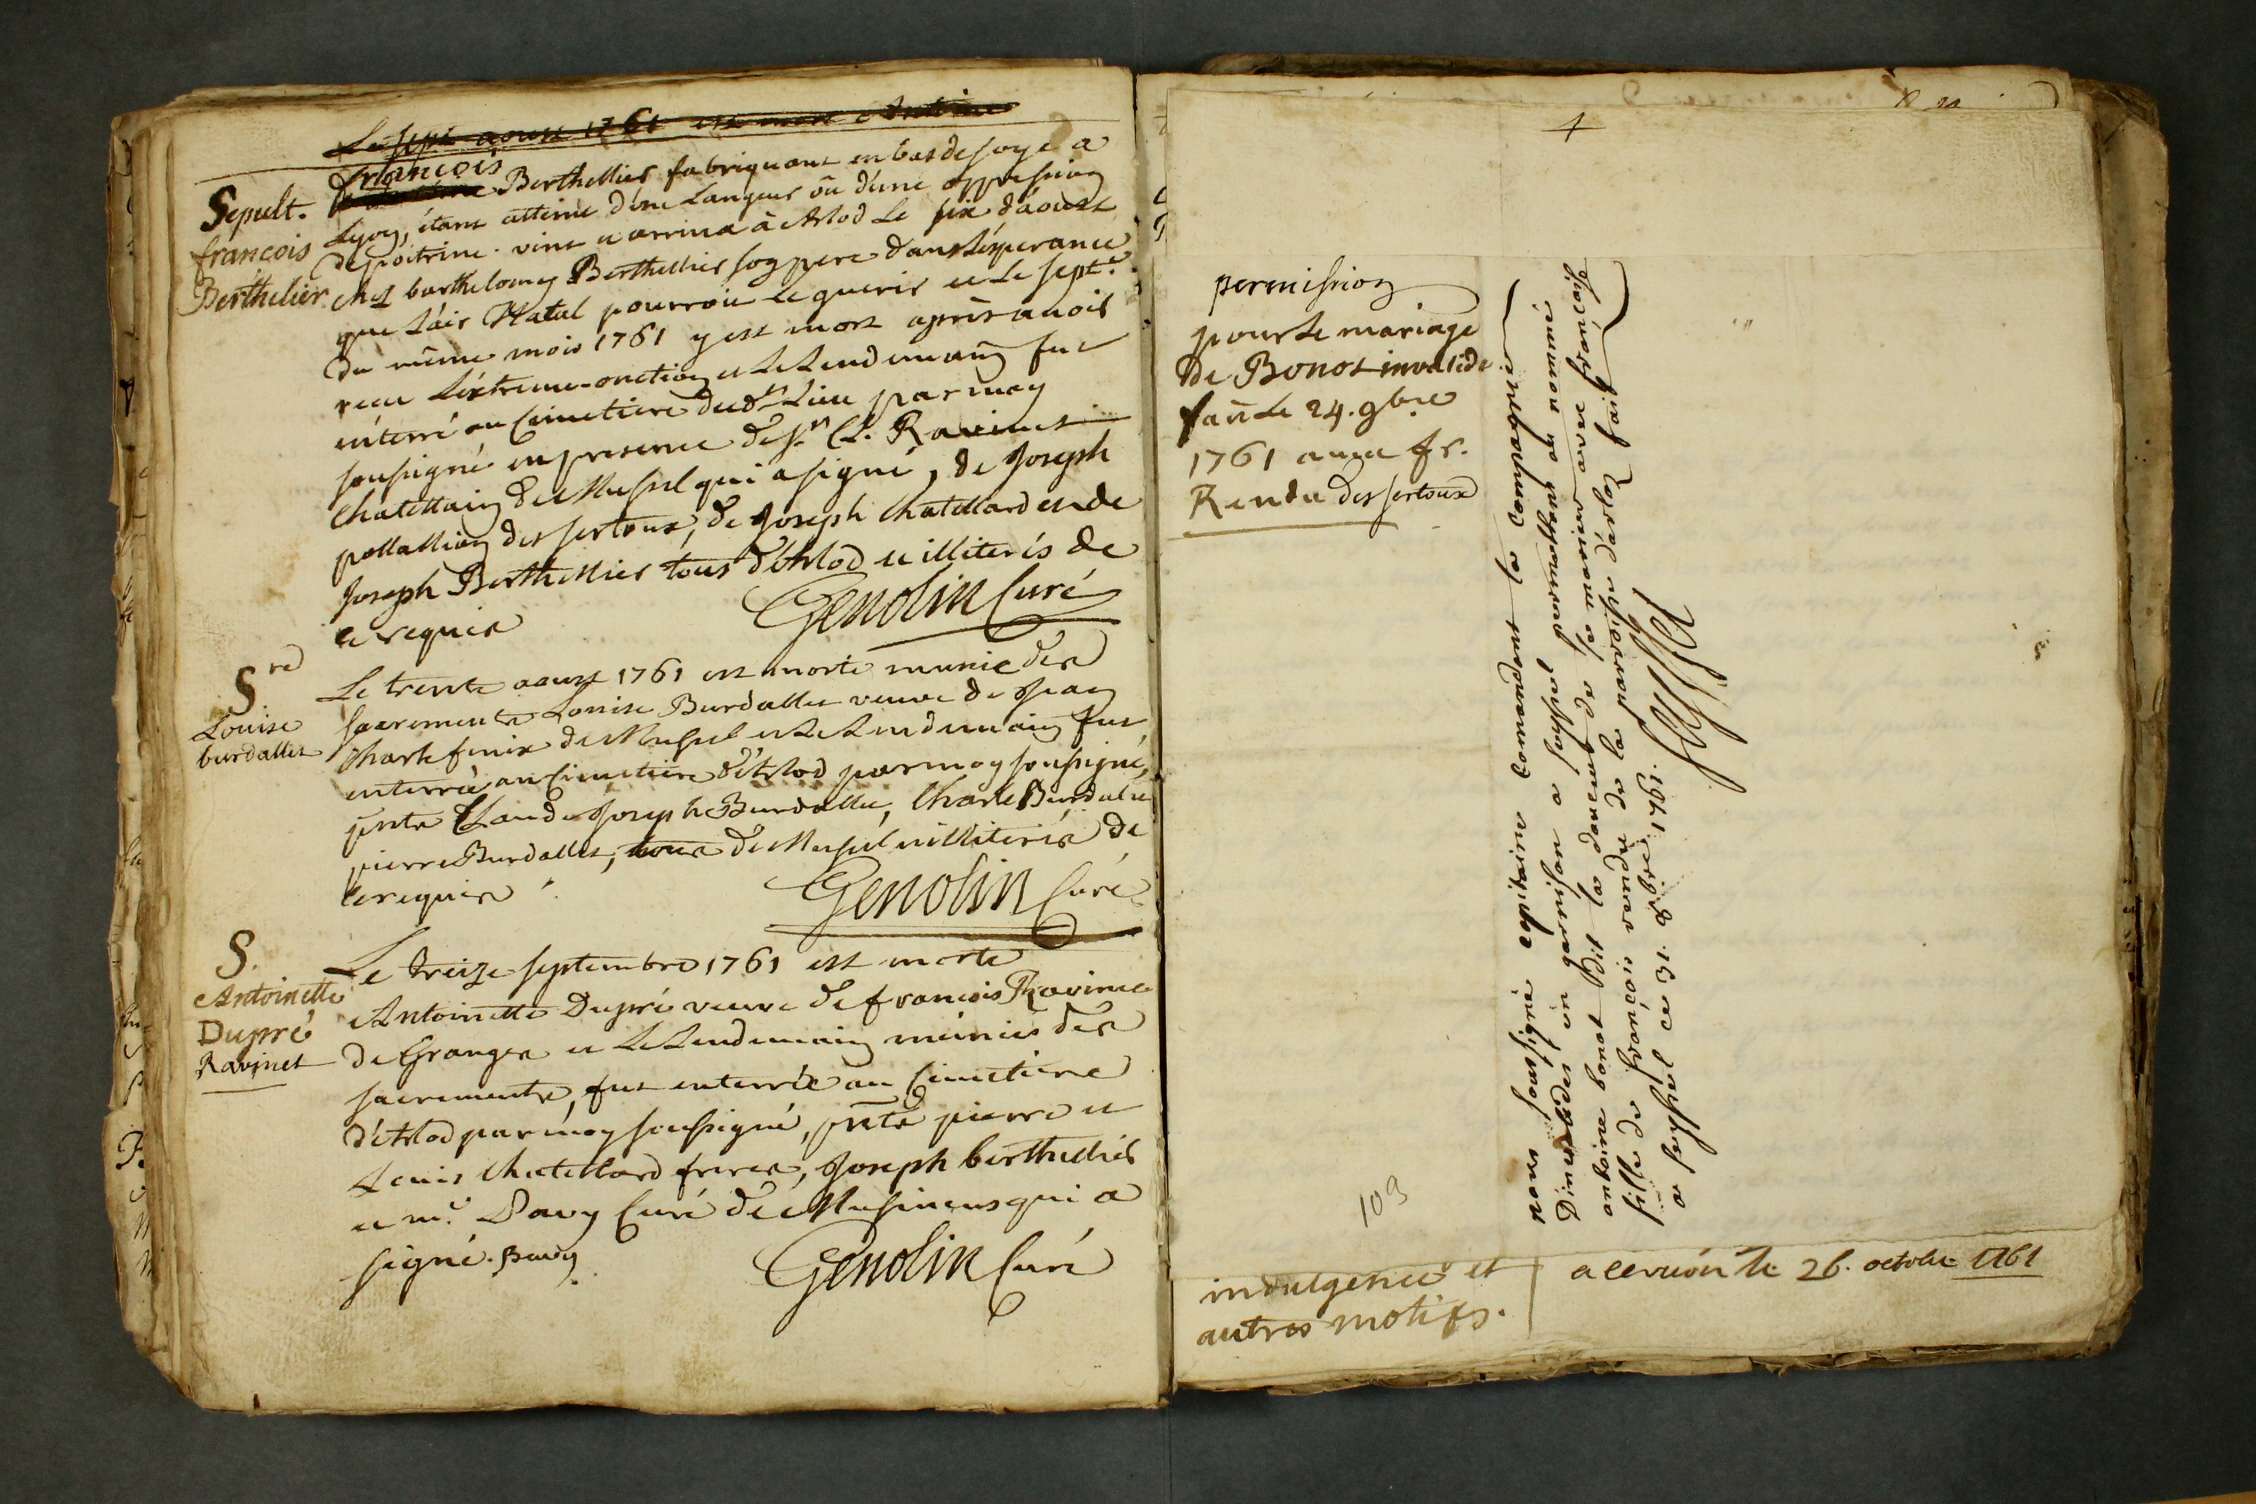 Le sept aoust 1761 est mort Antoine
Sepult.
françois
Berthelier
françois
Berthellier fabriquant en bas de soye a
Lyon, étant atteint d'une Langeur ou d'une oppression
de poitrine. vint et arriva à Arlod Le six d'aoust
chez barthelomy Berthellier son pere dans L'ésperance
que L'air Natal pourroit Le guerir et Le sept.e
du même mois 1761 y est mort après avoir
recu L'éxtreme-onction et Le Lendemain fut
enterré au Cimetiere dud.t Lieu par moy
soussigné en presence de s.r Cl. Ravinet
Chatellain de Mussel qui a signé, de Joseph
pollallion des sertoux, de Joseph Chatellard et de
Joseph Berthellier tous d'Arlod et illiterés de
ce requis
Genolin Curé
S.re
Louise
burdallet
Le trente aoust 1761 est morte munie des
sacrements Louise Burdallet veuve de Jean
Charle fenix de Mussel et Le Lendemain fut
enterrée au Cimetiere d'Arlod par moy soussigné,
pnts Claude Joseph Burdallet, Charle Burdalet
pierre Burdallet, tous de Mussel et illiterés de
ce requis
Genolin Curé
S.
Antoinette
Dupré
Ravinet
Le treize septembre 1761 est morte
Antoinette Dupré veuve de françois Ravinet
de Granges et Le Lendemain munie des
sacrements, fut enterrée au Cimetiere
d'Arlod par moy soussigné, pnts pierre et
Louis Chatellard freres, Joseph berthellier
et m.e Davy Curé de Musinens qui a
signé. Davy
Genolin Curé
permission
pour Le mariage
de Bonot invalide
fait Le 24. 9bre
1761 avec fr.
Rendu des sertoux
nous soussigné capitaine Comandent la Compagnie
Dinvalides en garnison a seyssel permettons au nommé
antoine bonot Dit la douceur de se marier avec françoise
fille de françois rendu de la parroisse d'érloz fait
a seyssel ce 31. 8.bre 1761.
109
indulgences et
autres motifs.
le 26. octobre 1761